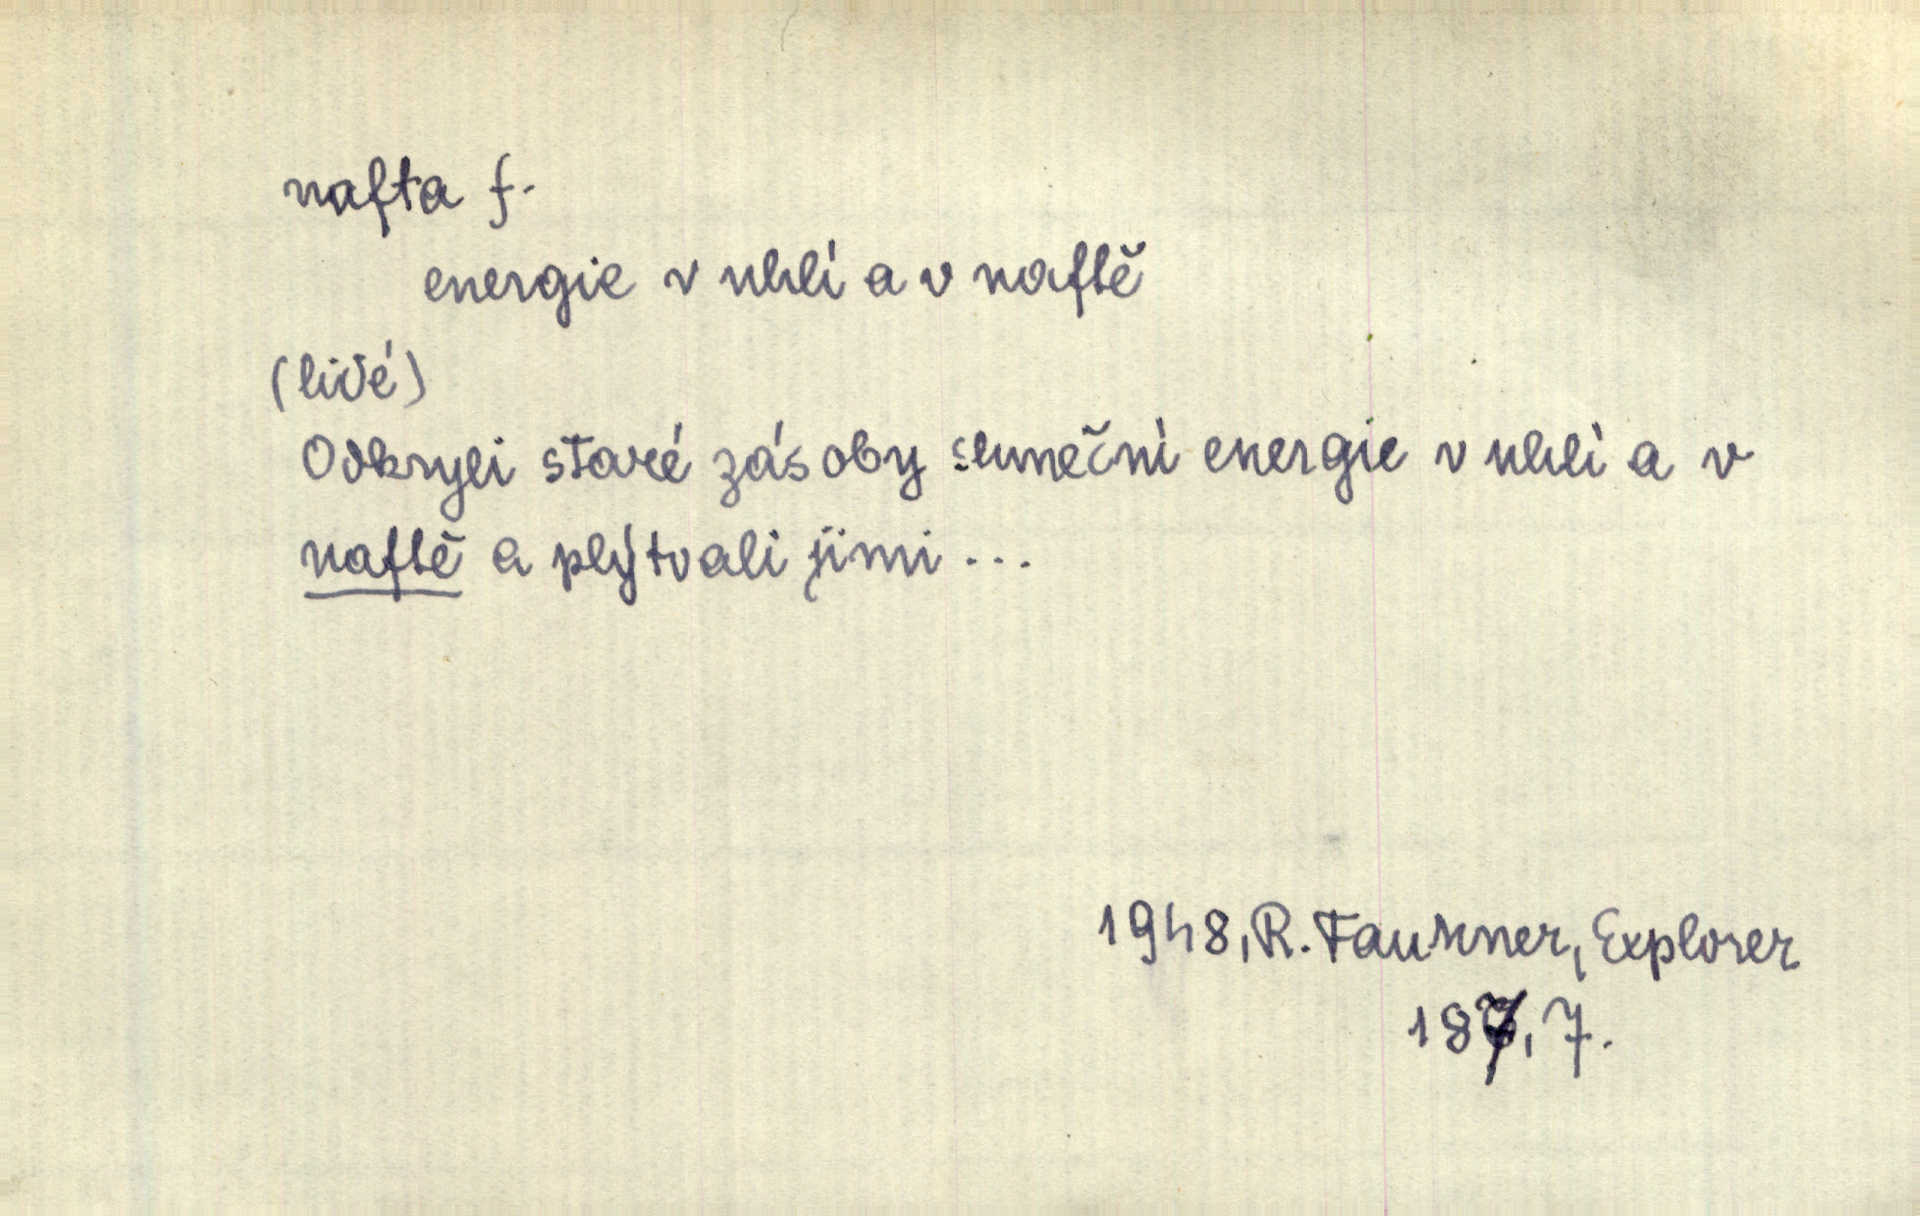 nafta f.
energie v uhlí a v naftě
(lidé)
Odkryli staré zásoby sluneční energie v uhlí a v
naftě a plýtvali jimi ...
1948, R. Faukner, Explorer
187, 7.